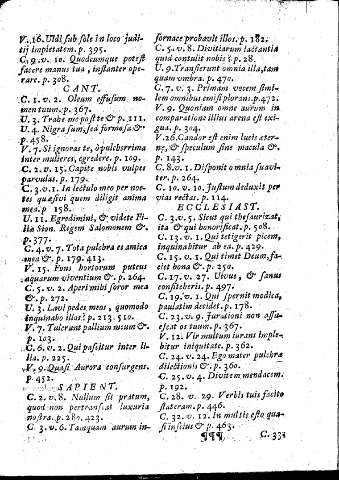 V. 16. Vidi sub sole in loco judi-
tij impietatem. p. 395.
C. 9. v. 10. Quodcumque potest
facere manus tua, instanter ope-
rare. p. 308.
CANT.
C. 1. v. 2. Oleum effusum no-
men tuum. p. 367.
V. 3. Trahe me post te &c. p. 111.
V. 4. Nigra sum, sed formosa &c.
p. 458.
V. 7. Si ignoras te, ò pulcherrima
inter mulieres, egredere. p. 109.
C. 2. v. 15. Capite nobis vulpes
parvulas. p. 179.
C. 3. v. 1. In lectulo meo per noc-
tes quæsivi quem diligit anima
mea. p. 158.
V. 11. Egredimini, & videte Fi-
liæ Sion. Regem Salomonem &c.
p. 377.
C. 4. v. 7. Tota pulcra es amica
mea &c. p. 179. 413.
V. 15. Fons hortorum puteus
aquarum viventium &c. p. 264.
C. 5. v. 2. Aperi mihi soror mea
&c. p. 272.
V. 3. Lavi pedes meos, quomodo
inquinabo illos? p. 213. 510.
V. 7. Tulerunt pallium meum &c.
p. 103.
C. 6. v. 2. Qui pascitur inter li-
lia. p. 225.
V. 9. Quasi Aurora consurgens.
p. 452.
SAPIENT.
C. 2. v. 8. Nullum sit pratum,
quod non pertranseat luxuria
nostra. p. 289. 423.
C. 3. v. 6. Tamquam aurum in-
fornace probavit illos. p. 182.
C. 5. v. 8. Divitiarum jactantia
quid contulit nobis? p. 28.
V. 9. Transierunt omnia illa, tam
quam umbra. p. 470.
C. 7. v. 3. Primam vocem simi-
lem omnibus emisi plorans. p. 472.
V. 9. Quoniam omne aurum in
comparatione illius arena est exi-
gua. p. 304.
V. 26. Candor est enim lucis æter-
næ, & speculum sine macula &c.
p. 143.
C. 8. v. 1. Disponit omnia suavi-
ter. p. 264.
C. 10. v. 10. Justum deduxit per
vias rectas. p. 114.
ECCLESIAST.
C. 3. v. 5. Sicut qui thesaurizat,
ita & qui honorificat. p. 508.
C. 13. v. 1. Qui tetigerit picem,
inquinabitur ab ea. p. 429.
C. 15. v. 1. Qui timet Deum, fa-
ciet bona &c. p. 250.
C. 17. v. 27. Vivus, & sanus
confiteberis. p. 497.
C. 19. v. 1. Qui spernit modica,
paulatim decidet. p. 175.
C. 23. v. 9. Jurationi non assu-
escat os tuum. p. 367.
V. 12. Vir multum jurans imple-
bitur iniquitate. p. 362.
C. 24. v. 24. Ego mater pulchræ
dilectionis &c. p. 360.
C. 25. v. 4. Divitem mendacem.
p. 192.
C. 28. v. 29. Verbis tuis facito
stateram. p. 446.
C. 32. v. 12. In multis esto qua-
si inscius &c. p. 463.
¶¶¶ C. 33.